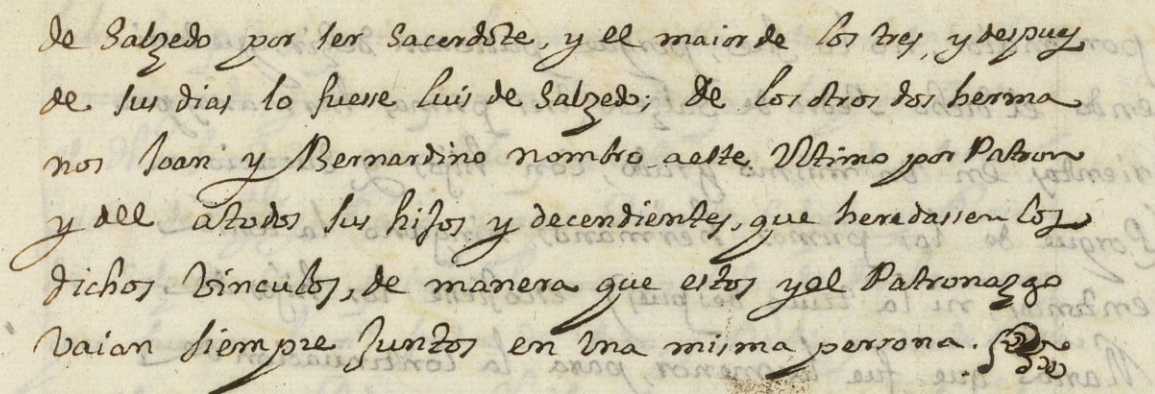 de Salzedo por ser Sacerdote, y el maior de los tres, y despues
de sus dias lo fuesse Luis de Salzedo; De los otros dos herma
nos Joan y Bernardino nombro a este Ultimo por Patron
y dell a todos sus hijos y decendientes, que heredassen los
dichos Vinculos, de manera que estos y el Patronazgo
Vaian siempre Juntos en Una misma persona.